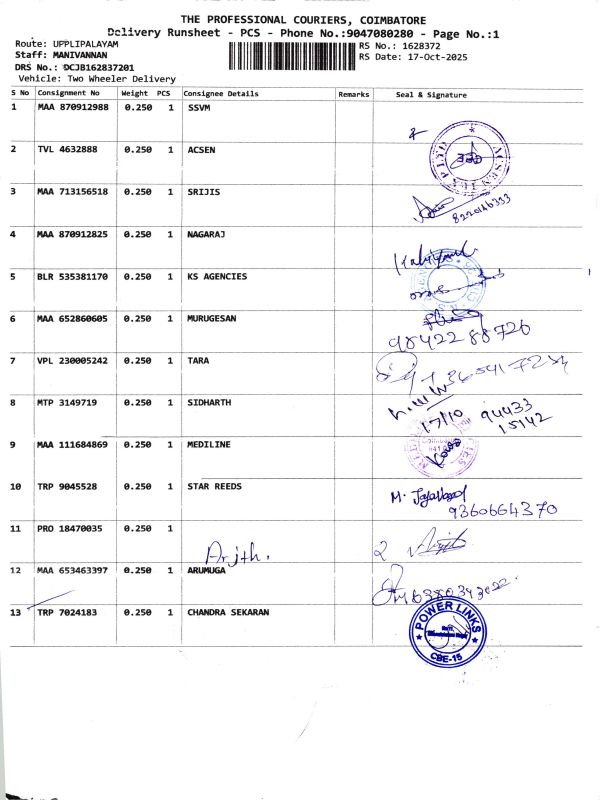 THE PROFESSIONAL COURIERS, COIMBATORE
Delivery Runsheet - PCS - Phone No.:9047080280 - Page No.:1
Route: UPPLIPALAYAM
Staff: MANIVANNAN
DRS No.: DCJB162837201
Vehicle: Two Wheeler Delivery
RS No.: 1628372
RS Date: 17-Oct-2025
S No Consignment No Weight PCS Consignee Details Remarks Seal & Signature
1 MAA 870912988 0.250 1 SSVM
2 TVL 4632888 0.250 1 ACSEN
3 MAA 713156518 0.250 1 SRIJIS
4 MAA 870912825 0.250 1 NAGARAJ
5 BLR 535381170 0.250 1 KS AGENCIES
6 MAA 652860605 0.250 1 MURUGESAN
98422 88726
7 VPL 230005242 0.250 1 TARA
8 MTP 3149719 0.250 1 SIDHARTH
17/10 94433
15142
9 MAA 111684869 0.250 1 MEDILINE
10 TRP 9045528 0.250 1 STAR REEDS
9360664370
11 PRO 18470035 0.250 1
Arjth. 2
12 MAA 653463397 0.250 1 ARUMUGA
13 TRP 7024183 0.250 1 CHANDRA SEKARAN
POWER LINKS
CBE-15